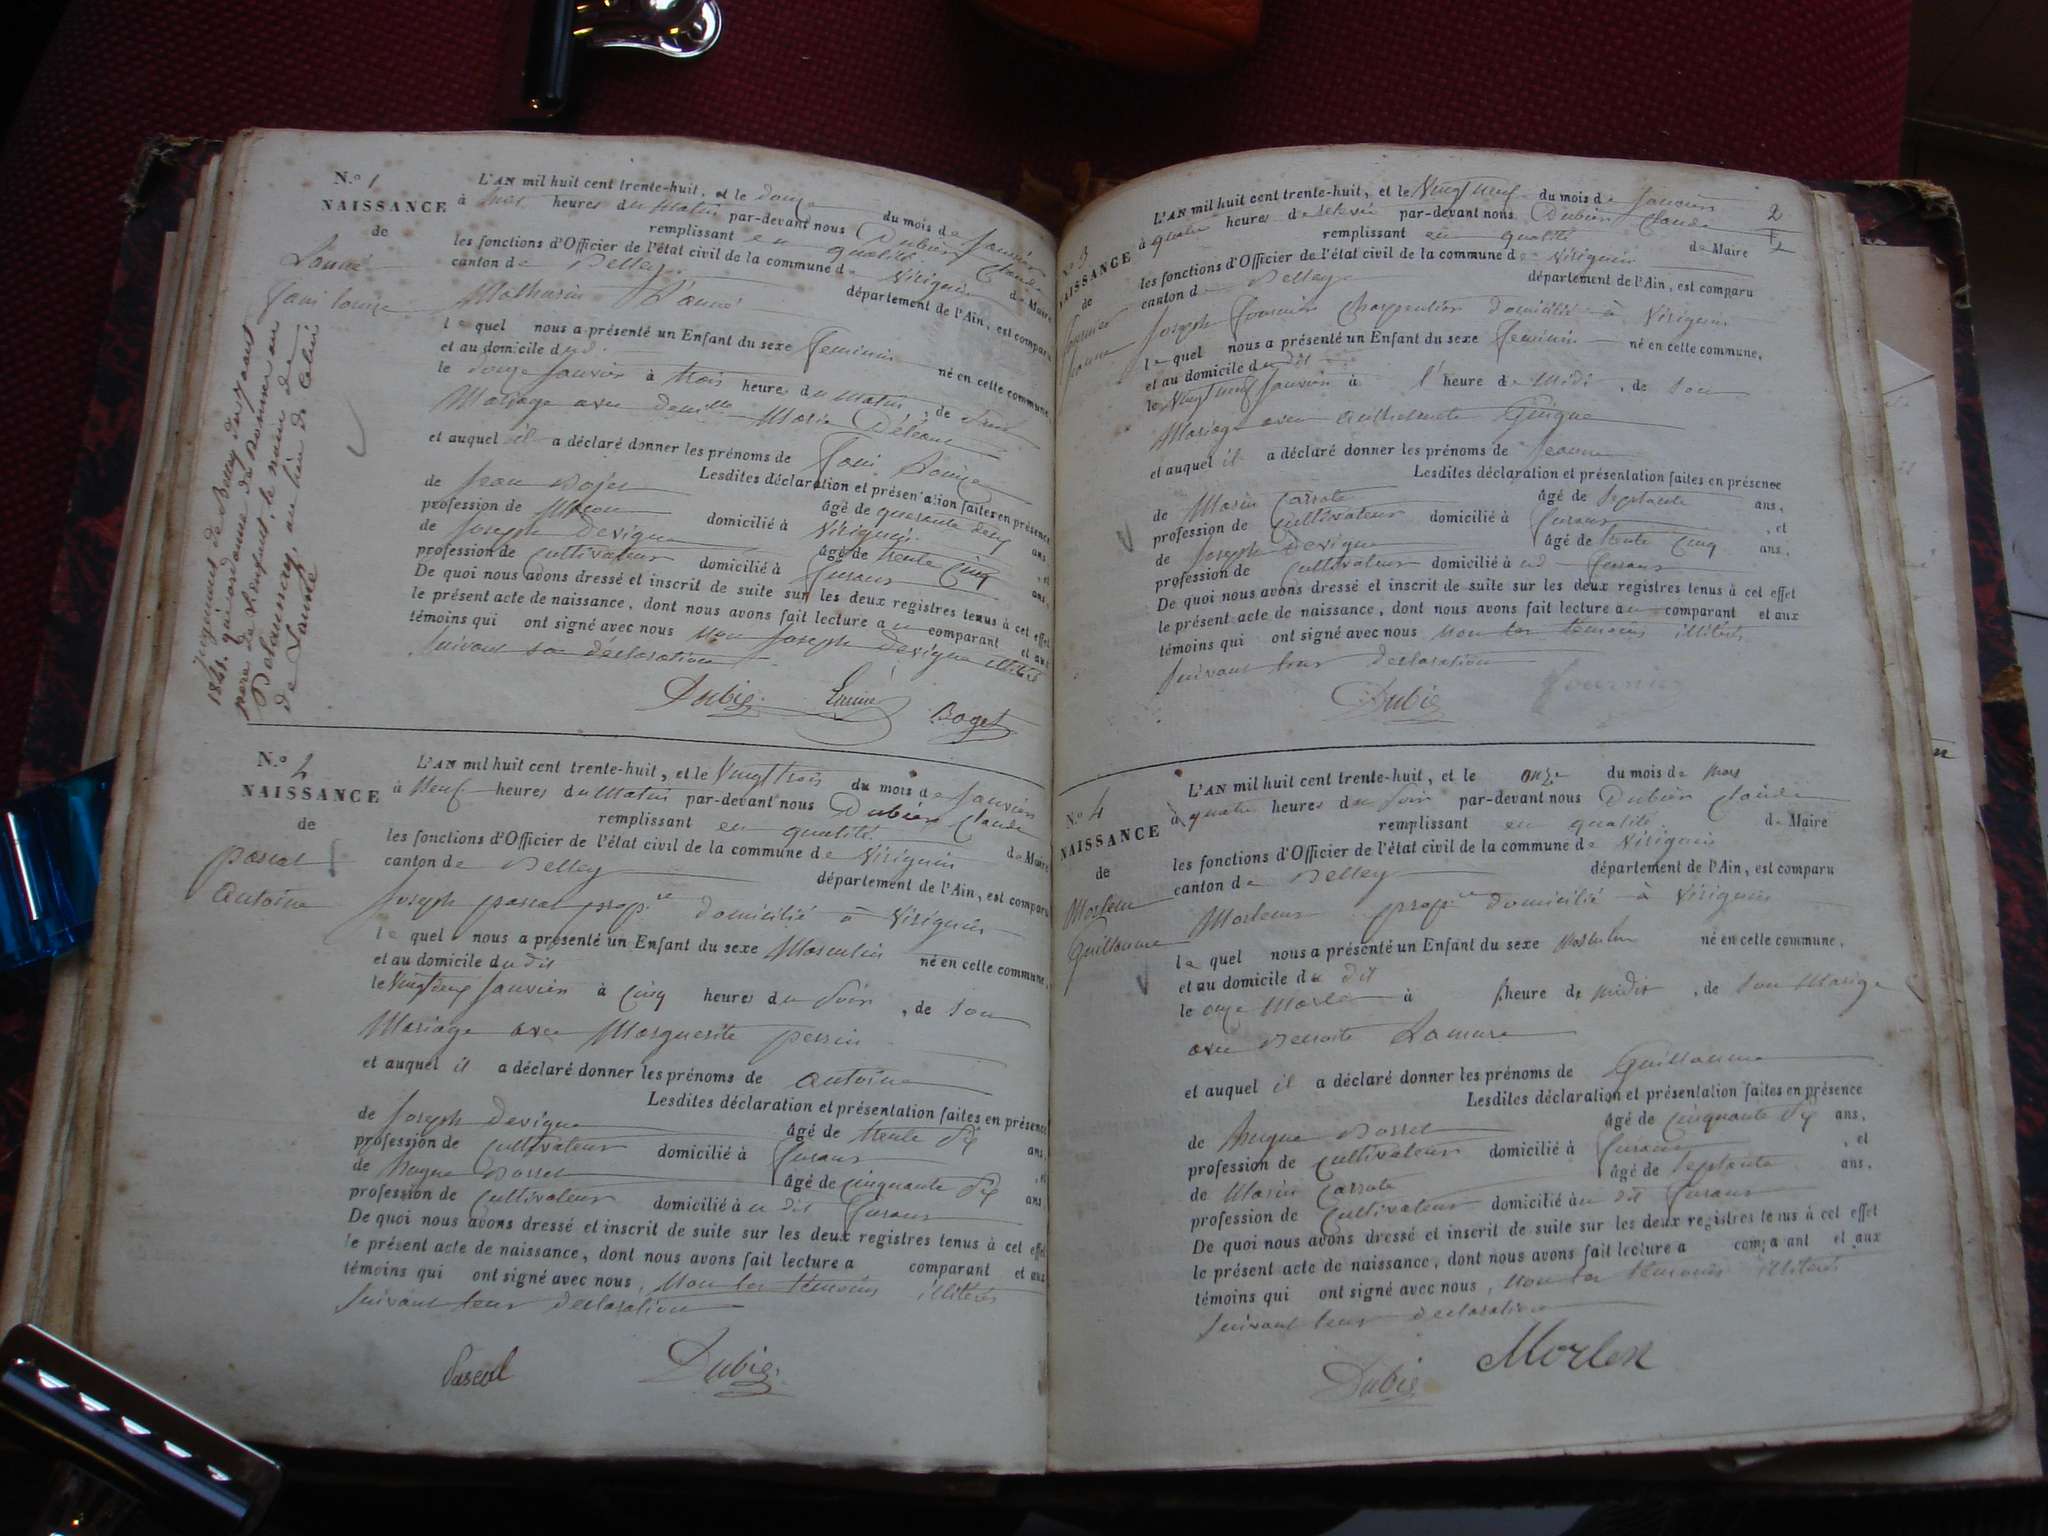 N.° 1
NAISSANCE
de
Launé
Fani Louise
Jugement de Belley du 7 aout
1841. qui ordonne de donner au
père de l'enfant, le nom de
Delauney, au lieu de celui
de Launé
L'AN mil huit cent trente-huit, et le douze du mois de Janvier
à heures du Matin par-devant nous Dubien Claude
remplissant en qualité de Maire
les fonctions d'Officier de l'état civil de la commune de Virignin
canton de Belley département de l'Ain, est comparu
Mathurin Launé
le quel nous a présenté un Enfant du sexe Feminin né en cette commune
et au domicile du d.
le douze Janvier à trois heures du Matin, de son
Mariage avec Marie
et auquel il a déclaré donner les prénoms de Fani Louise
Lesdites déclaration et présentation faites en présence
de Jean Bojet âgé de quarante deux ans,
profession de Maçon domicilié à Virignin, et
de Joseph Devigne âgé de trente cinq ans,
profession de Cultivateur domicilié à
De quoi nous avons dressé et inscrit de suite sur les deux registres tenus à cet effet
le présent acte de naissance, dont nous avons fait lecture au comparant et aux
témoins qui ont signé avec nous non Joseph Devigne illitéré
suivant sa déclaration
Dubie Launé Boget
N.° 2
NAISSANCE
de
pascal
Antoine
L'AN mil huit cent trente-huit, et le Vingt trois du mois de Janvier
à Neuf heures du Matin par-devant nous Dubien Claude
remplissant en qualité de Maire
les fonctions d'Officier de l'état civil de la commune de Virignin
canton de Belley département de l'Ain, est comparu
Joseph pascal prop.re domicilié à Virignin
le quel nous a présenté un Enfant du sexe Masculin né en cette commune,
et au domicile du dit
le Vingt deux Janvier à Cinq heures du Soir, de son
Mariage avec Marguerite perrin
et auquel il a déclaré donner les prénoms de Antoine
Lesdites déclaration et présentation faites en présence
de Joseph Devigne âgé de trente six ans,
profession de Cultivateur domicilié à , et
de hugue Bosset âgé de cinquante six ans
profession de Cultivateur domicilié au dit
De quoi nous avons dressé et inscrit de suite sur les deux registres tenus à cet effet
le présent acte de naissance, dont nous avons fait lecture a comparant et aux
témoins qui ont signé avec nous, Non les témoins illitérés
suivant leur declaration
Pascal Dubie
2
N.° 3
NAISSANCE
de
fournier
Jeanne
L'AN mil huit cent trente-huit, et le Vingt neuf du mois de Janvier
à quatre heures de relevée par-devant nous Dubien Claude
remplissant en qualité de Maire
les fonctions d'Officier de l'état civil de la commune de Virignin
canton de Belley département de l'Ain, est comparu
Joseph fournier Charpentier domicilié à Virignin
le quel nous a présenté un Enfant du sexe feminin né en cette commune,
et au domicile du dit
le Vingt neuf Janvier à l'heure de Midi, de son
Mariage avec Anthelmette Guigue
et auquel il a déclaré donner les prénoms de Jeanne
Lesdites déclaration et présentation faites en présence
de Marin Carrote âgé de septante ans,
profession de Cultivateur domicilié à , et
de Joseph Devigne âgé de trente cinq ans,
profession de Cultivateur domicilié
De quoi nous avons dressé et inscrit de suite sur les deux registres tenus à cet effet
le présent acte de naissance, dont nous avons fait lecture au comparant et aux
témoins qui ont signé avec nous Non les témoins illitérés
suivant leur declaration
Dubie fournier
N.° 4
NAISSANCE
de
Morleur
Guillaume
L'AN mil huit cent trente-huit, et le onze du mois de mars
à quatre heures du Soir par-devant nous Dubien Claude
remplissant en qualité de Maire
les fonctions d'Officier de l'état civil de la commune de Virignin
canton de Belley département de l'Ain, est comparu
prop.re domicilié à Virignin
le quel nous a présenté un Enfant du sexe Masculin né en cette commune,
et au domicile du dit
le onze à heure de midi, de son Mariage
avec Benoite Lamure
et auquel il a déclaré donner les prénoms de Guillaume
Lesdites déclaration et présentation faites en présence
de hugue Bosset âgé de cinquante six ans,
profession de Cultivateur domicilié à , et
de Marin Carrote âgé de septante ans,
profession de Cultivateur domicilié au dit
De quoi nous avons dressé et inscrit de suite sur les deux registres tenus à cet effet
le présent acte de naissance, dont nous avons fait lecture a comparant et aux
témoins qui ont signé avec nous, Non les témoins illitérés
suivant leur declaration
Dubie Morlen